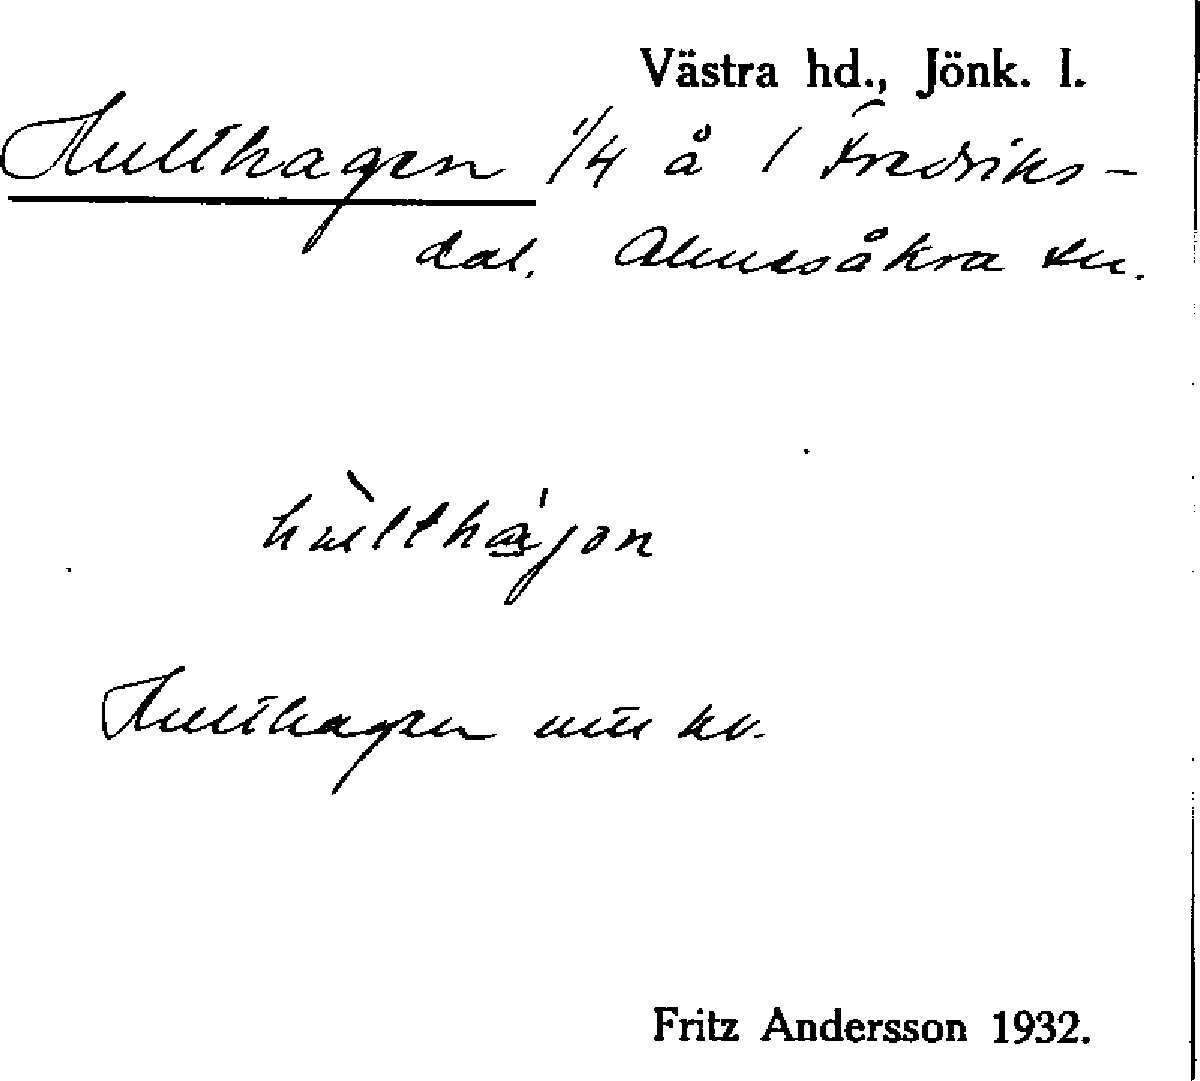 Västra hd., Jönk. l.
Hulthagen 1/4 å 1 Fredriks-
dal. Almesåkra sn.
hùlthágon
Hulthagen
Fritz Andersson 1932.